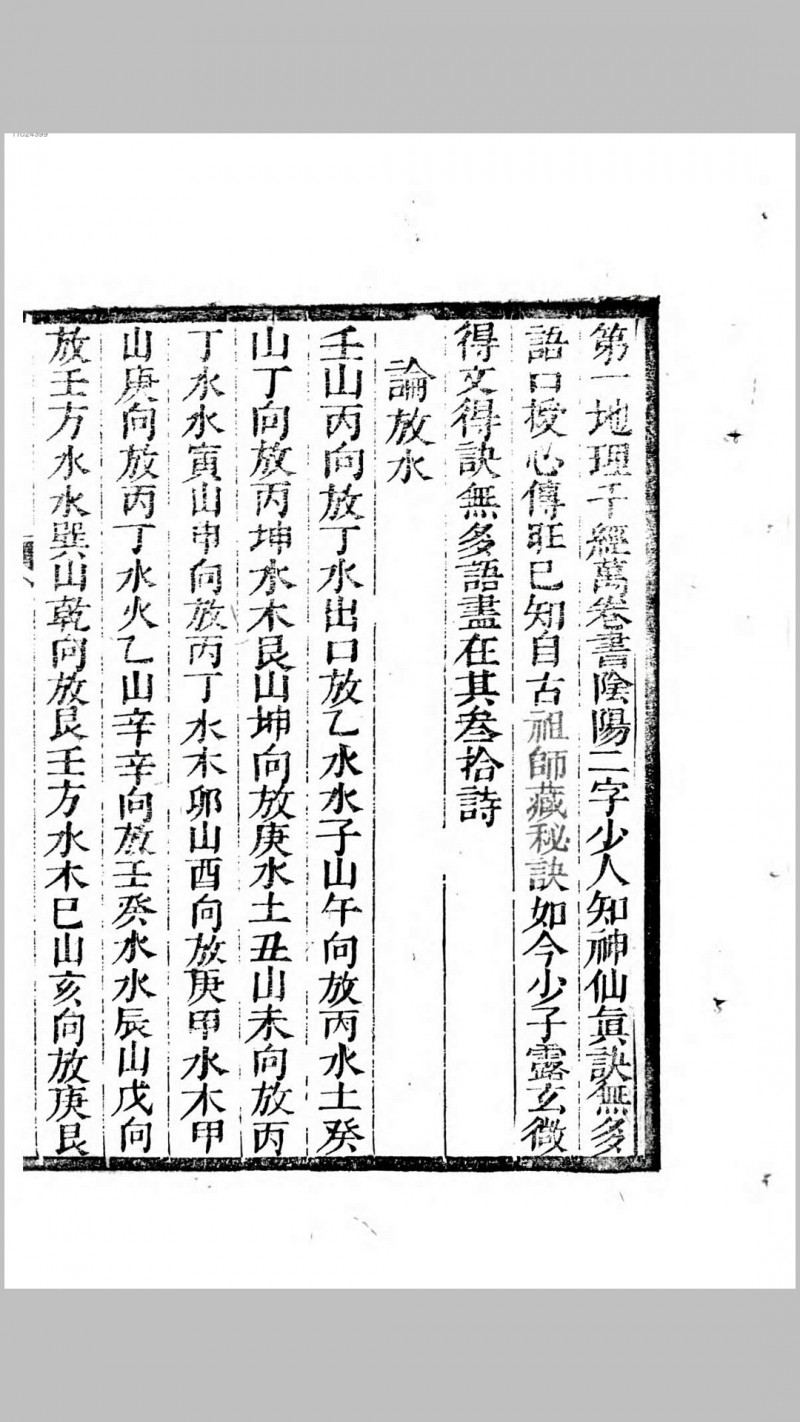 11024399
第一地理千經萬卷書陰陽二字少人知神仙眞訣無多
語口授心傳旺已知自古祖師藏秘訣如今少子露玄微
得文得訣無多語盡在其叁拾詩
論放水
壬山丙向放丁水出口放乙水水子山午向放丙水土癸
山丁向放丙坤水木艮山坤向放庚水土丑山未向放丙
丁水水寅山申向放丙丁水木卯山酉向放庚甲水木甲
山庚向放丙丁水火乙山辛辛向放壬癸水水辰山戊向
放壬方水水巽山乾向放艮壬方水木巳山亥向放庚艮